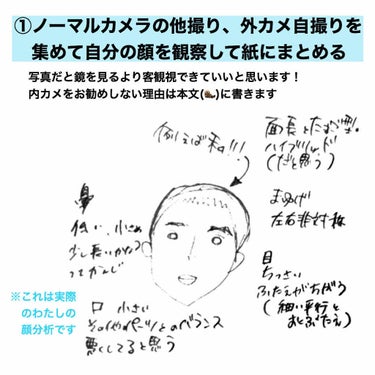 ①ノーマルカメラの他撮り、外カメ自撮りを
集めて自分の顔を観察して紙にまとめる
写真だと鏡を見るより客観視できていいと思います！
内カメをお勧めしない理由は本文(✍🏾)に書きます
例えば私!!!
面長とたまご型の
ハイブリッド
(だと思う)
まゆげ
左右非対称
鼻
低い、小さめ
少し長いかな?
ってかんじ
目
ちっさい
ふたえがちがう
(細い平行と
おくぶたえ)
口 小さい
その他パーツとのバランス
悪くしてると思う
※これは実際
のわたしの
顔分析です